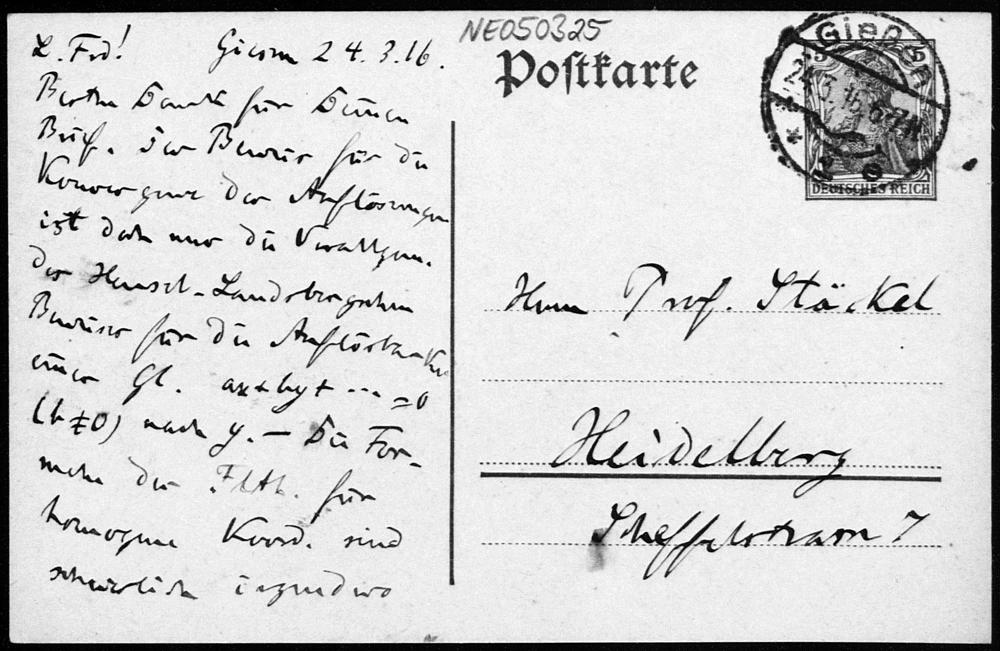 NE050325
Postkarte
Gießen
24.3.16.
5 5
DEUTSCHES REICH
L. Frd! Giessen 24.3.16.
Besten Dank für Deinen
Brief. Der Beweis für die
Konvergenz der Auflösungen
ist doch nur die Verallgem.
der Hensel-Landsbergschen
Beweises für die Auflösbarkeit
einer Gl. ax+by+ --- =0
(b≠0) nach y. — Die For-
meln der Flth. für
homogene Koord. sind
schwerlich irgendwo
Herrn Prof. Stäckel
Heidelberg
Scheffelstrasse 7